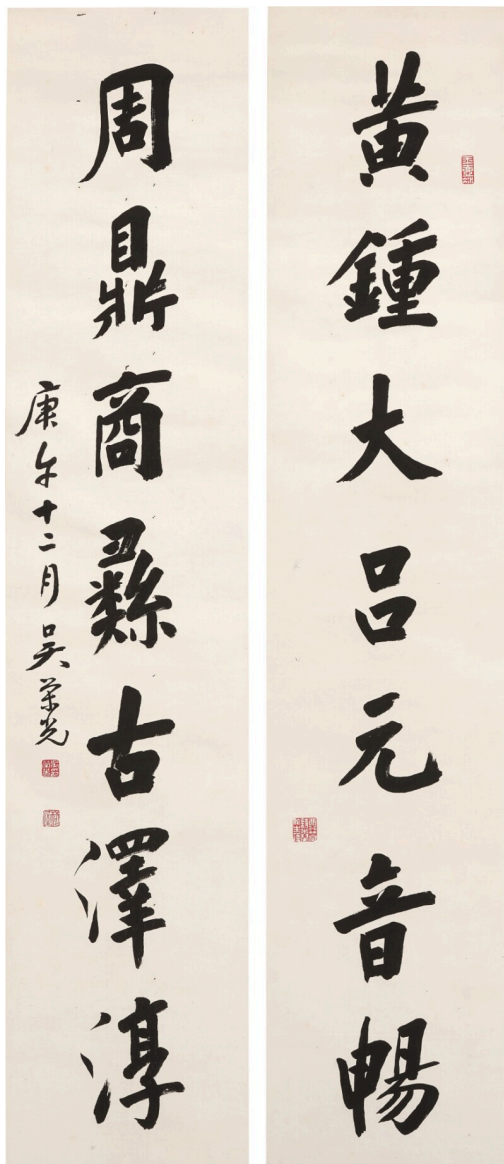 黃鍾大呂元音暢
周鼎商彝古澤淳
庚午十二月吳荣光